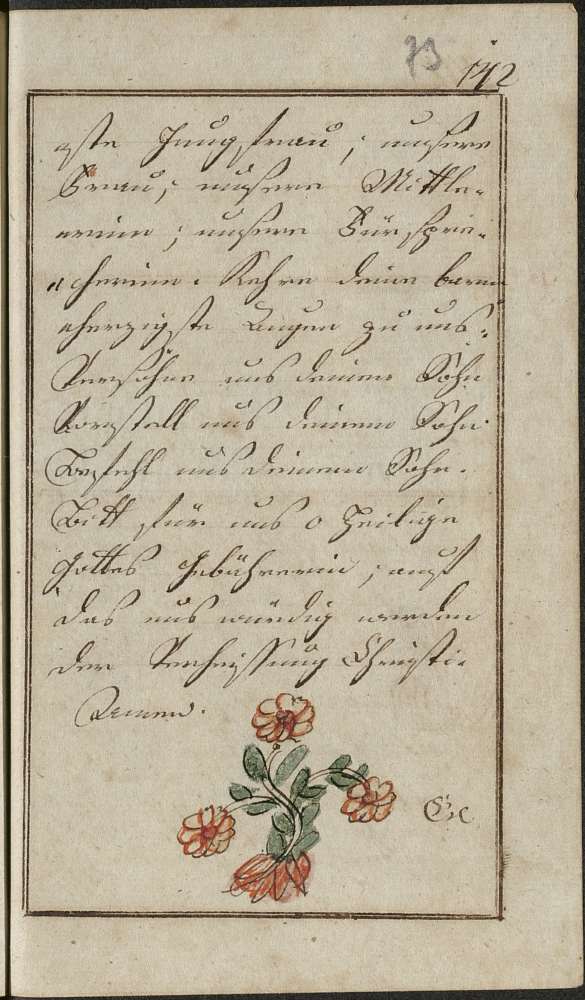 73
142
gste Jungfrau, unsere
Frau, unsere Mittle-
rrinn, unsere Fürsprie-
cherinn. Kehre deine barm
herzigste Augen zu uns.
Versöhne uns deinem Sohn
Vorstell uns deinem Sohn
Befehl uns deinem Sohn.
Bitt für uns o Heilige
Gottes Gebährerin, auf
das uns würdig werden
der Verheissung Christi.
Amen.